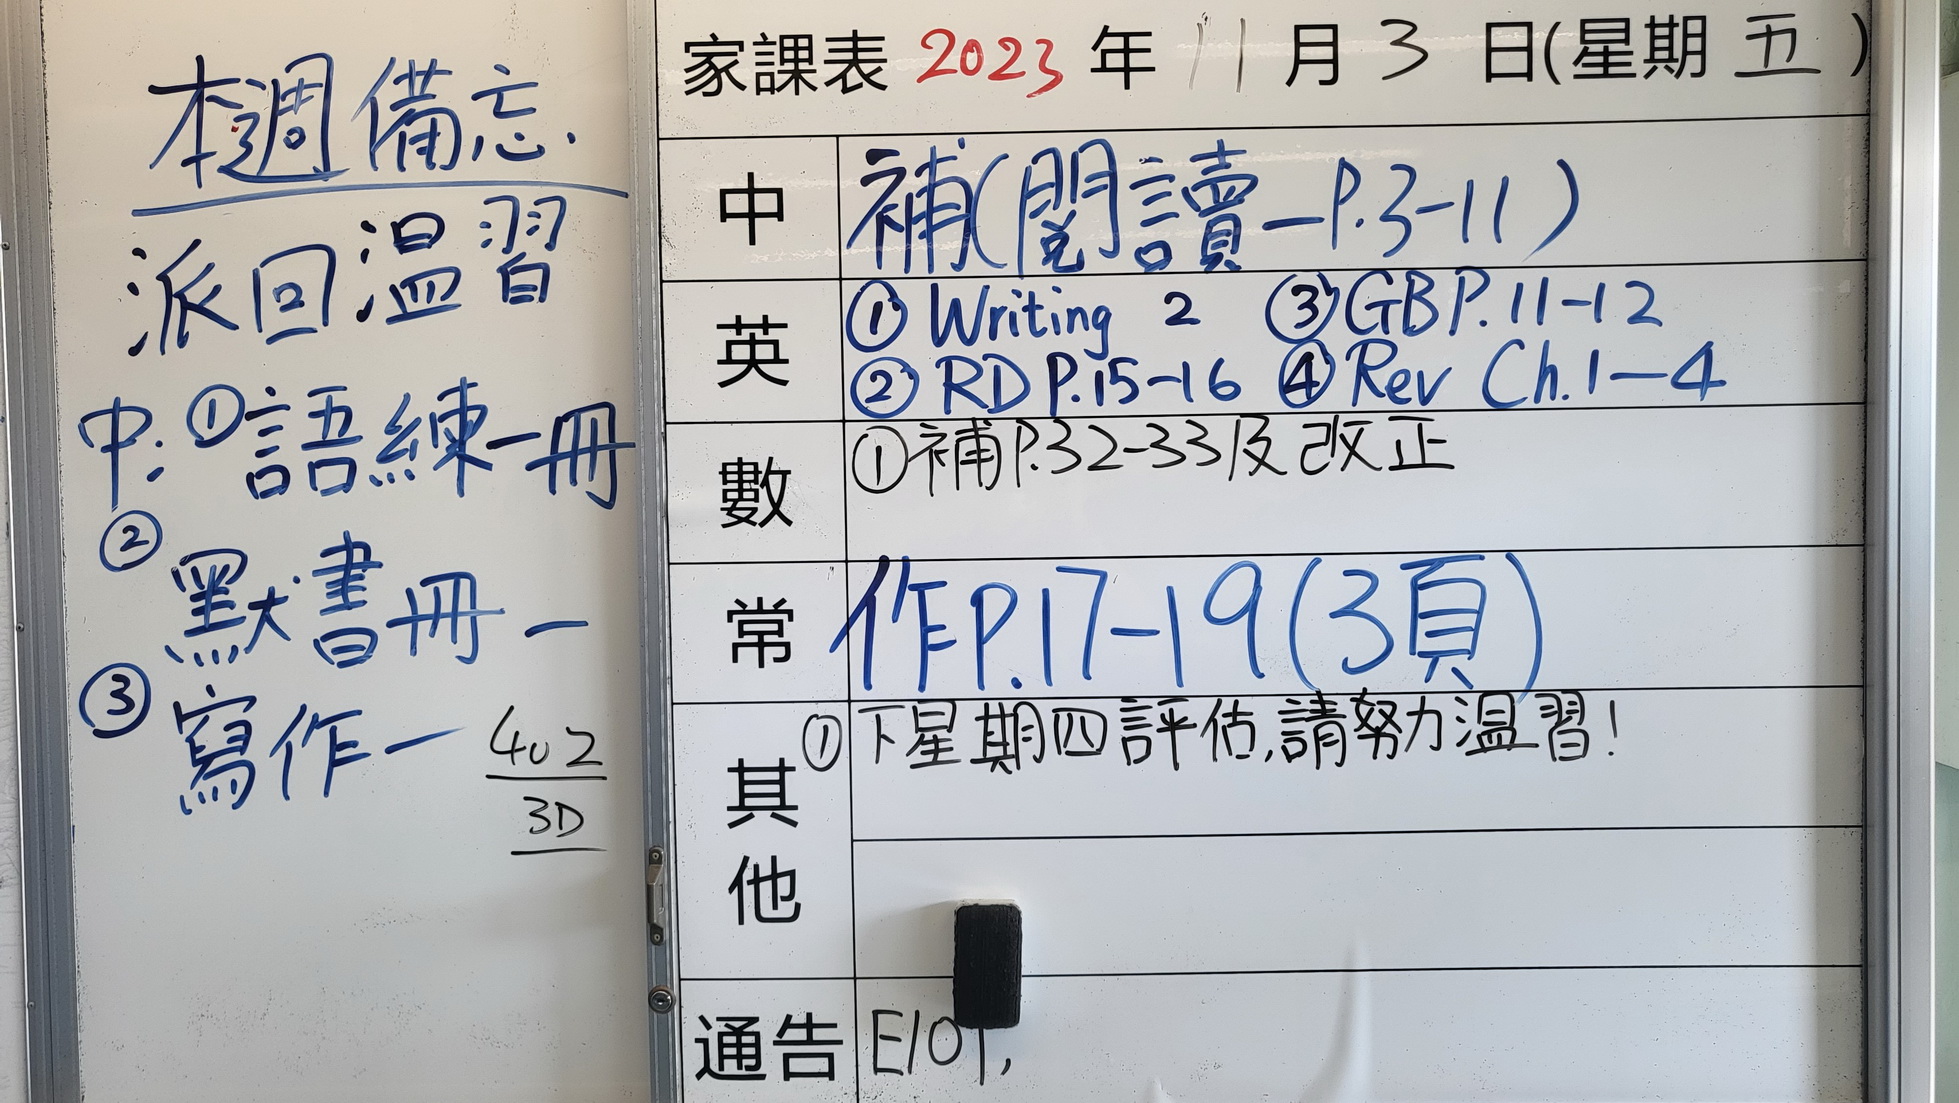 本週備忘.
派回溫習
中: ①語練一冊
② 默書冊一
③ 寫作一
402
3D
家課表 2023 年 11 月 3 日(星期 五 )
中 補(閱讀—P.3-11)
英 ① Writing 2 ③ GB P.11-12
② RD P.15-16 ④ Rev Ch.1-4
數 ①補P.32-33及改正
常 作P.17-19(3頁)
其他 ①下星期四評估,請努力溫習!
通告